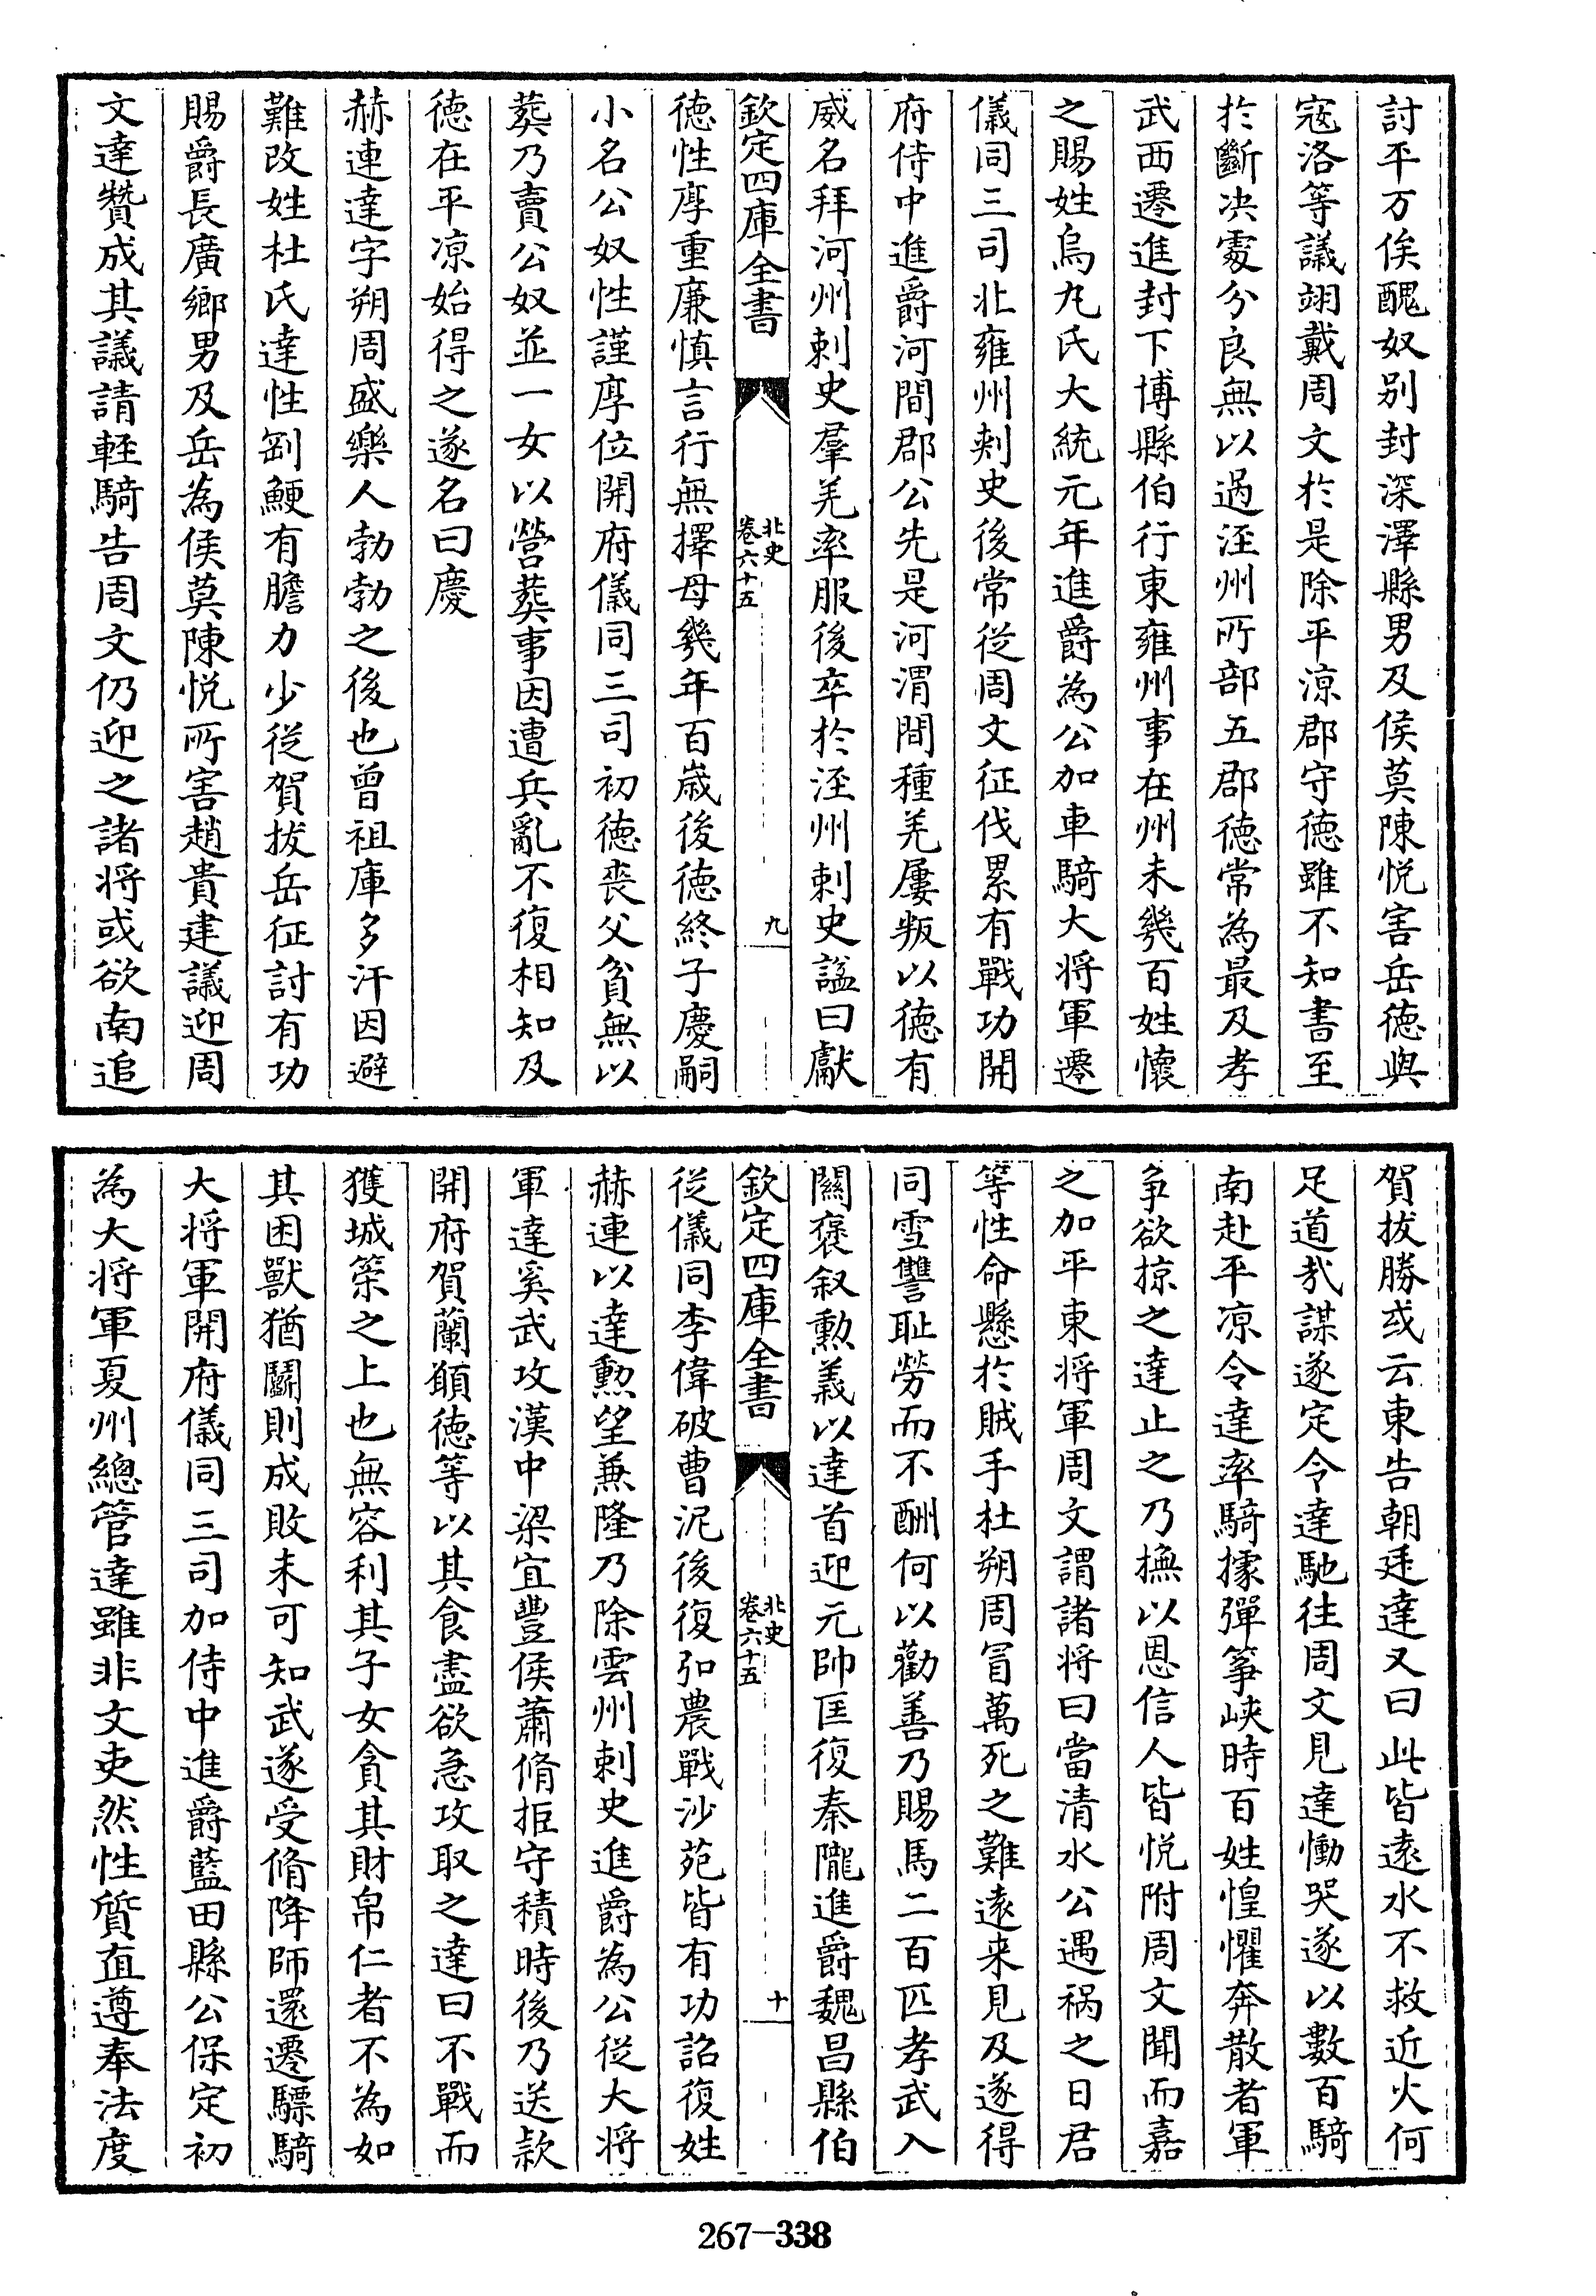 討平万俟醜奴別封深澤縣男及侯莫陳悦害岳德與
寇洛等議翊戴周文於是除平涼郡守德雖不知書至
於斷决處分良無以過涇州所部五郡德常為最及孝
武西遷進封下博縣伯行東雍州事在州未幾百姓懷
之賜姓烏丸氏大統元年進爵為公加車騎大将軍遷
儀同三司北雍州刺史後常從周文征伐累有戰功開
府侍中進爵河間郡公先是河渭間種羌屢叛以德有
威名拜河州刺史羣羌率服後卒於涇州刺史諡曰獻
欽定四庫全書
北史
卷六十五
九
德性厚重廉慎言行無擇母幾年百嵗後德終子慶嗣
小名公奴性謹厚位開府儀同三司初德喪父貧無以
葬乃賣公奴並一女以營葬事因遭兵亂不復相知及
德在平凉始得之遂名曰慶
赫連達字朔周盛樂人勃勃之後也曾祖庫多汗因避
難改姓杜氏達性剛鯁有膽力少從賀拔岳征討有功
賜爵長廣鄉男及岳為侯莫陳悦所害趙貴建議迎周
文達贊成其議請輕騎告周文仍迎之諸将或欲南追
賀拔勝或云東告朝廷達又曰此皆遠水不救近火何
足道哉謀遂定令達馳往周文見達慟哭遂以數百騎
南赴平凉令達率騎據彈箏峽時百姓惶懼奔散者軍
争欲掠之達止之乃撫以恩信人皆悦附周文聞而嘉
之加平東将軍周文謂諸将曰當清水公遇禍之日君
等性命懸於賊手杜朔周冒萬死之難遠来見及遂得
同雪讐耻勞而不酬何以勸善乃賜馬二百匹孝武入
關褒叙勲義以達首迎元帥匡復秦隴進爵魏昌縣伯
欽定四庫全書
北史
卷六十五
十
從儀同李偉破曹泥後復弘農戰沙苑皆有功詔復姓
赫連以達勲望兼隆乃除雲州刺史進爵為公從大将
軍達奚武攻漢中梁宜豐侯蕭脩拒守積時後乃送款
開府賀蘭願德等以其食盡欲急攻取之達曰不戰而
獲城策之上也無容利其子女貪其財帛仁者不為如
其困獸猶鬭則成敗未可知武遂受脩降師還遷驃騎
大将軍開府儀同三司加侍中進爵藍田縣公保定初
為大将軍夏州總管達雖非文吏然性質直遵奉法度
267-338